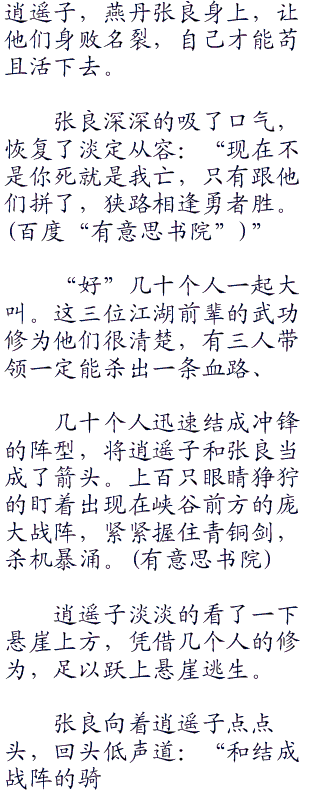 逍遥子，燕丹张良身上，让
他们身败名裂，自己才能苟
且活下去。
张良深深的吸了口气，
恢复了淡定从容：“现在不
是你死就是我亡，只有跟他
们拼了，狭路相逢勇者胜。
(百度“有意思书院”)”
“好”几十个人一起大
叫。这三位江湖前辈的武功
修为他们很清楚，有三人带
领一定能杀出一条血路、
几十个人迅速结成冲锋
的阵型，将逍遥子和张良当
成了箭头。上百只眼睛狰狞
的盯着出现在峡谷前方的庞
大战阵，紧紧握住青铜剑，
杀机暴涌。(有意思书院)
逍遥子淡淡的看了一下
悬崖上方，凭借几个人的修
为，足以跃上悬崖逃生。
张良向着逍遥子点点
头，回头低声道：“和结成
战阵的骑